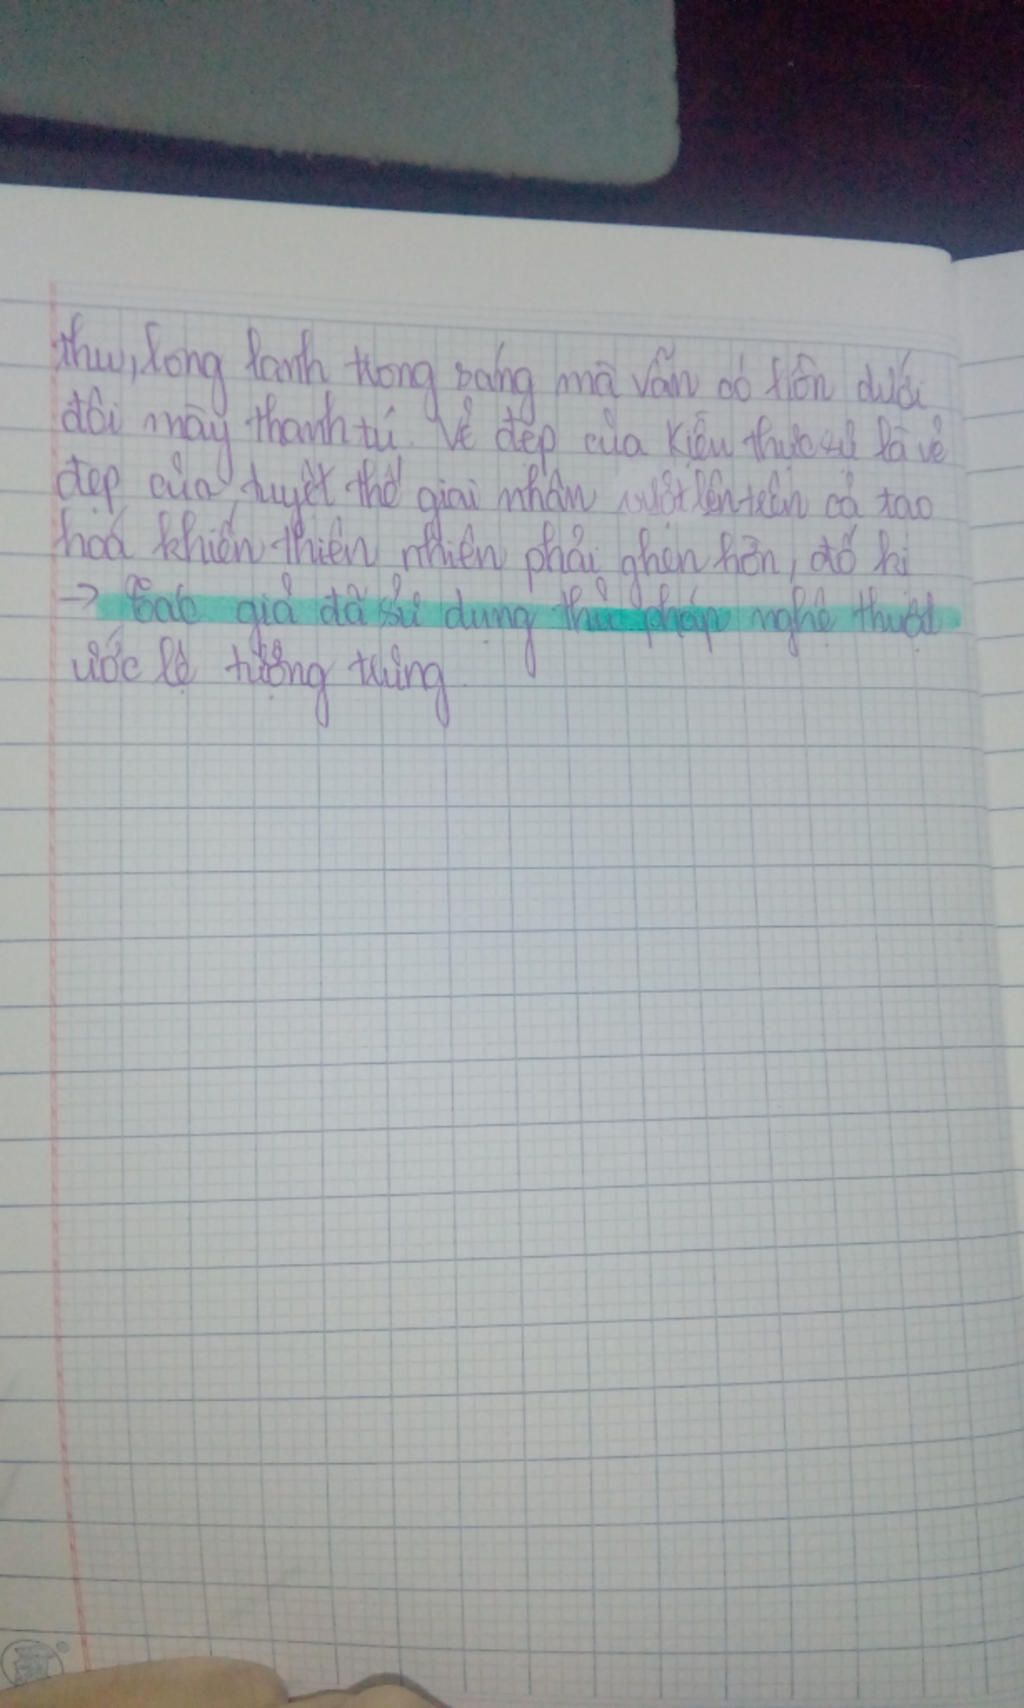 thu, long lanh trong sáng mà vẫn có hồn dưới
đôi mày thanh tú. Vẻ đẹp của Kiều thực sự là vẻ
đẹp của tuyệt thế giai nhân vượt lên trên cả tạo
hoá khiến thiên nhiên phải ghen hờn, đố kị
→ Tác giả đã sử dụng thủ pháp nghệ thuật
ước lệ tượng trưng